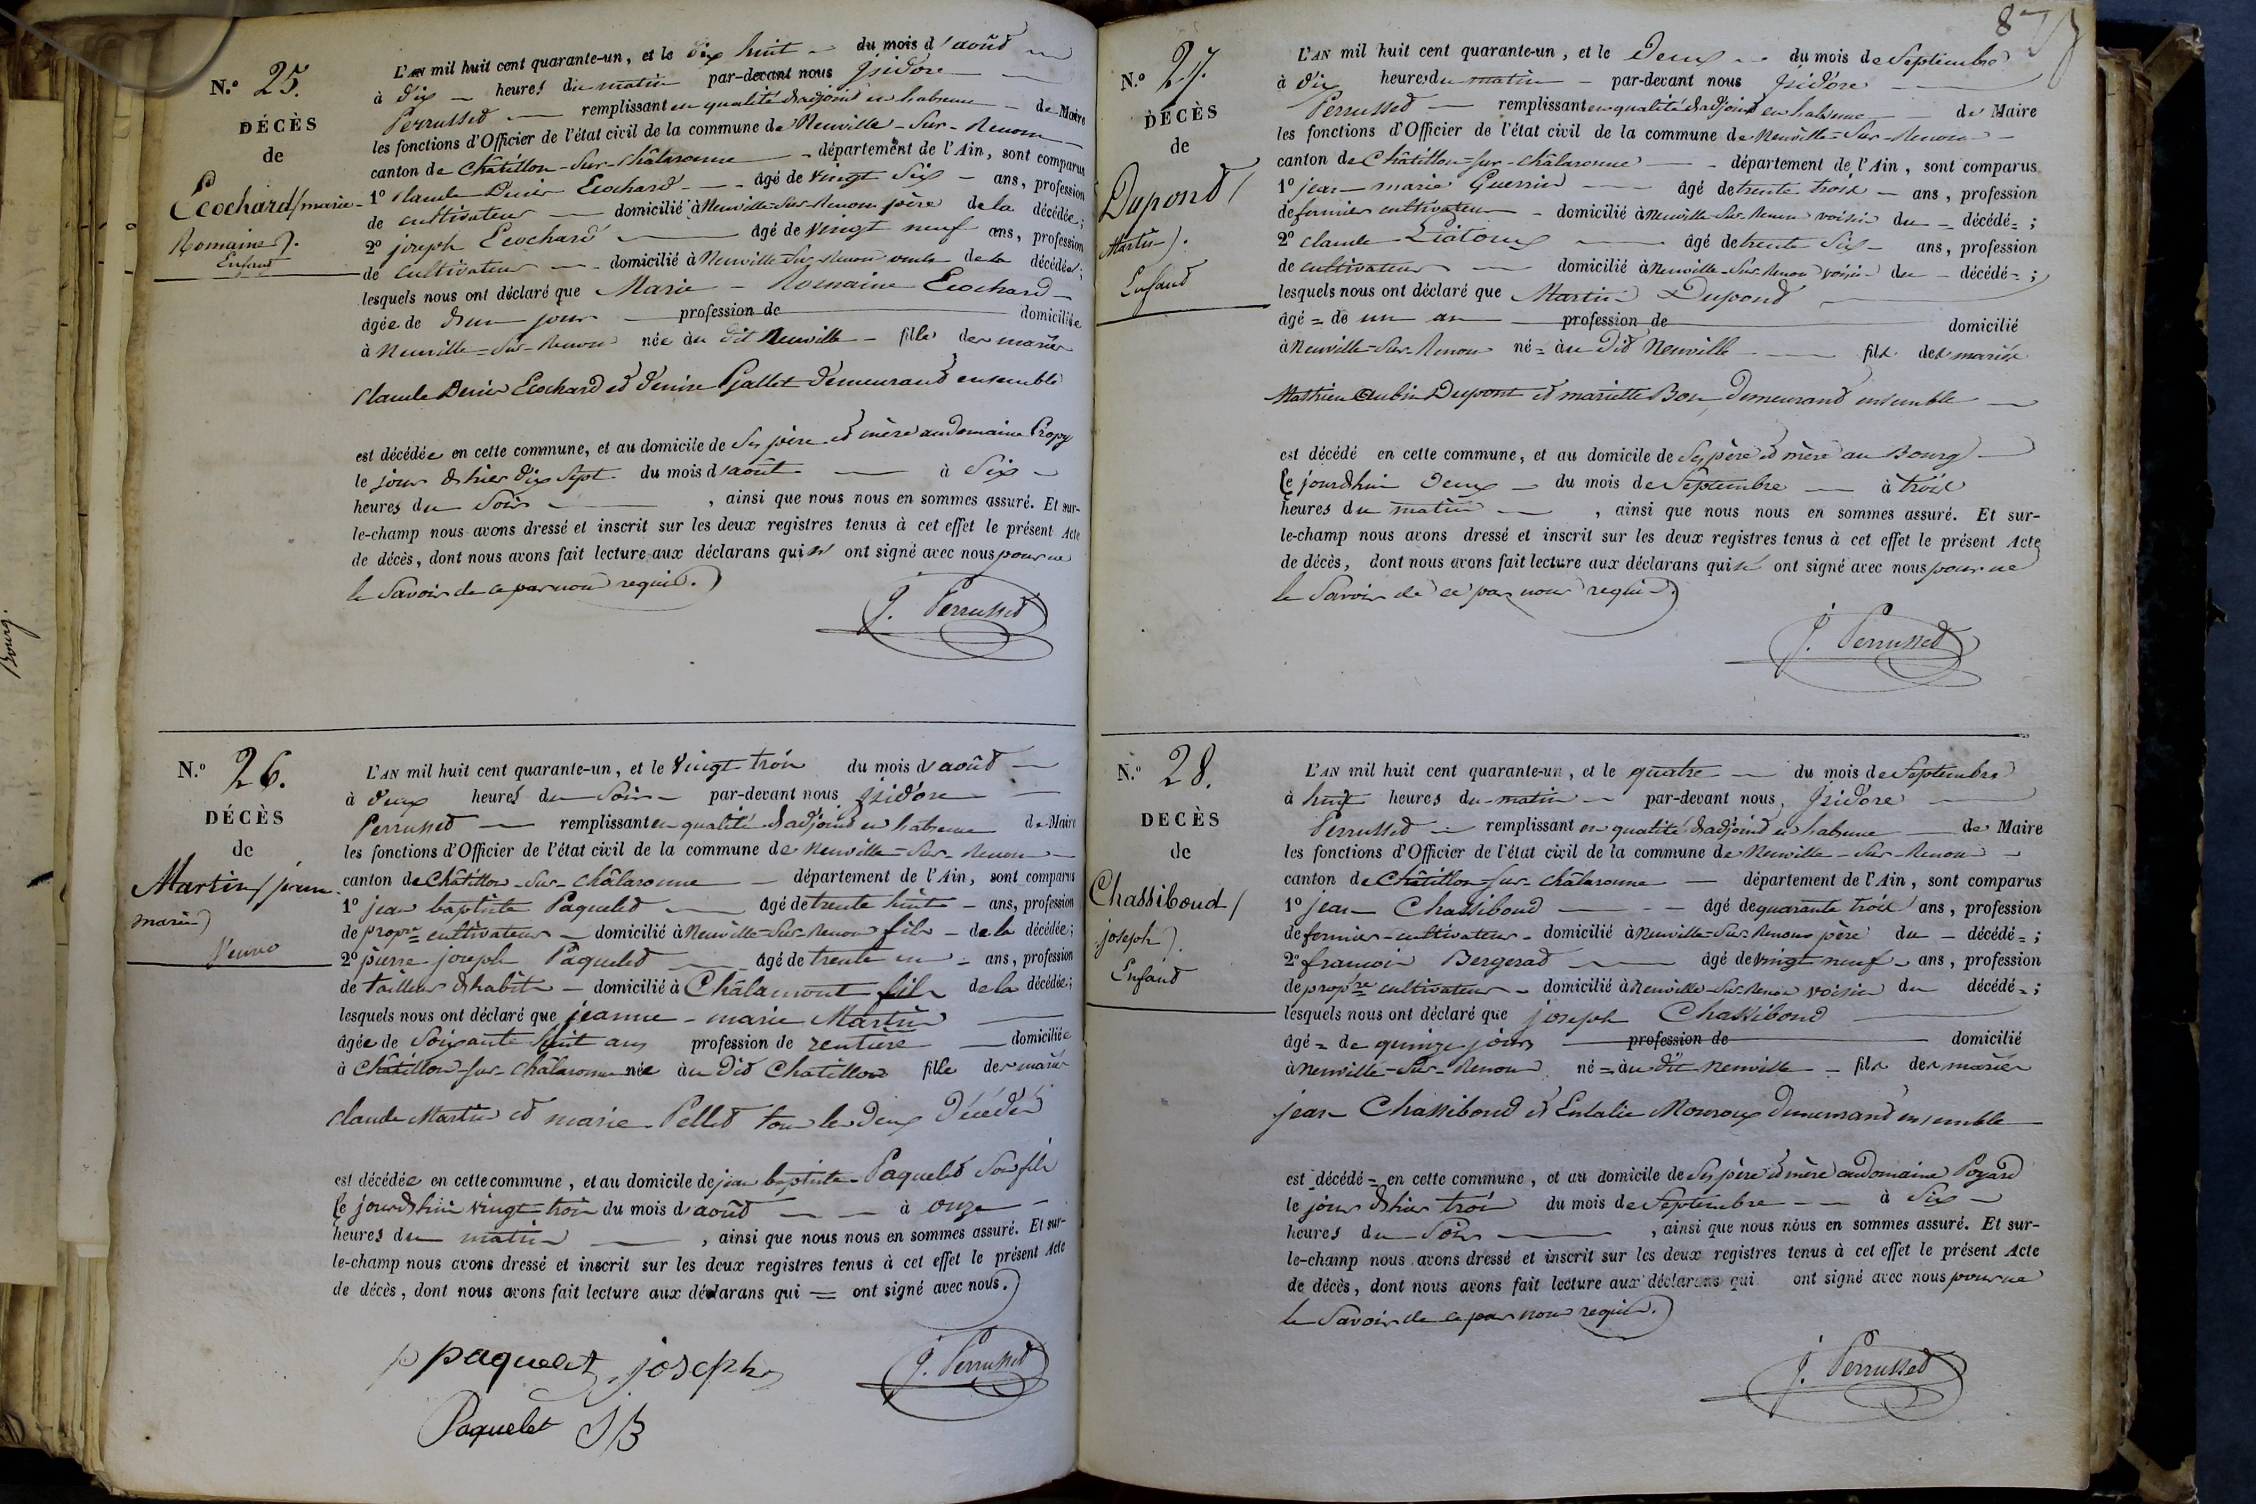 N.º 25.
DÉCÈS
de
Ecochard (marie
Romaine).
Enfant
L'AN mil huit cent quarante-un, et le dix huit du mois d'août
à dix heures du matin par-devant nous Isidore
Perrussed remplissant en qualité d'adjoint en l'absence de Maire
les fonctions d'Officier de l'état civil de la commune de Neuville-Sur-Renom
canton de Châtillon-Sur-Châlaronne département de l'Ain, sont comparus
1º Claude Denis Ecochard âgé de vingt six ans, profession
de cultivateur domicilié à Neuville-Sur-Renom père de la décédée;
2º joseph Ecochard âgé de vingt neuf ans, profession
de cultivateur domicilié à Neuville-Sur-Renom oncle de la décédée;
lesquels nous ont déclaré que Marie Romaine Ecochard
âgée de d'un jour profession de domiciliée
à Neuville-Sur-Renom née au dit Neuville fille des mariés
Claude Denis Ecochard et denise Gallet demeurant ensemble
est décédée en cette commune, et au domicile de ses père et mère au domaine Propy
le jour d'hier dix Sept du mois d'août à Six
heures du Soir, ainsi que nous nous en sommes assuré. Et sur-
le-champ nous avons dressé et inscrit sur les deux registres tenus à cet effet le présent Acte
de décès, dont nous avons fait lecture aux déclarans qui n' ont signé avec nous pour ne
le Savoir de ce par nous requis.
J. Perrussed
N.º 26.
DÉCÈS
de
Martin (jeanne
marie)
Veuve
L'AN mil huit cent quarante-un, et le vingt-trois du mois d'août
à deux heures du Soir par-devant nous Isidore
Perrussed remplissant en qualité d'adjoint en l'absence de Maire
les fonctions d'Officier de l'état civil de la commune de Neuville-Sur-Renom
canton de Châtillon-Sur-Châlaronne département de l'Ain, sont comparus
1º jean baptiste Paquelet âgé de trente huit ans, profession
de propre cultivateur domicilié à Neuville-Sur-Renom fils de la décédée;
2º pierre joseph Paquelet âgé de trente un ans, profession
de tailleur d'habits domicilié à Châlamont fils de la décédée;
lesquels nous ont déclaré que jeanne-marie Martin
âgée de Soixante huit ans profession de rentière domiciliée
à Châtillon-sur-Châlaronne née au dit Châtillon fille des mariés
Claude Martin et marie Pellet tous les deux décédés
est décédée en cette commune, et au domicile de jean baptiste Paquelet Son fils
le jourd'hui vingt-trois du mois d'août à onze
heures du matin, ainsi que nous nous en sommes assuré. Et sur-
le-champ nous avons dressé et inscrit sur les deux registres tenus à cet effet le présent Acte
de décès, dont nous avons fait lecture aux déclarans qui = ont signé avec nous.
p paquelet joseph
J. Perrussed
Paquelet JB
87
N.º 27.
DÉCÈS
de
Dupond (
Martin).
Enfant
L'AN mil huit cent quarante-un, et le deux du mois de Septembre
à dix heures du matin par-devant nous Isidore
Perrussed remplissant en qualité d'adjoint en l'absence de Maire
les fonctions d'Officier de l'état civil de la commune de Neuville-Sur-Renom
canton de Châtillon-sur-Châlaronne département de l'Ain, sont comparus
1º jean-marie Guerrin âgé de trente trois ans, profession
de fermier cultivateur domicilié à Neuville-Sur-Renom voisin du décédé;
2º claude Liatoux âgé de trente Six ans, profession
de cultivateur domicilié à Neuville-Sur-Renom voisin du décédé;
lesquels nous ont déclaré que Martin Dupond
âgé = de un an profession de domicilié
à Neuville-Sur-Renom né = au dit Neuville fils des mariés
Mathieu Aubin Dupont et mariette Bon demeurant ensemble
est décédé en cette commune, et au domicile de Ses père et mère au Bourg
le jourd'hui deux du mois de Septembre à trois
heures du matin, ainsi que nous nous en sommes assuré. Et sur-
le-champ nous avons dressé et inscrit sur les deux registres tenus à cet effet le présent Acte
de décès, dont nous avons fait lecture aux déclarans qui n' ont signé avec nous pour ne
le Savoir de ce par nous requis.
J. Perrussed
N.º 28.
DECÈS
de
Chassiboud (
joseph).
Enfant
L'AN mil huit cent quarante-un, et le quatre du mois de Septembre
à huit heures du matin par-devant nous, Isidore
Perrussed remplissant en qualité d'adjoint en l'absence de Maire
les fonctions d'Officier de l'état civil de la commune de Neuville-Sur-Renom
canton de Châtillon-sur-Châlaronne département de l'Ain, sont comparus
1º jean Chassiboud âgé de quarante trois ans, profession
de fermier-cultivateur domicilié à Neuville-Sur-Renom père du décédé;
2º francois Bergerad âgé de vingt neuf ans, profession
de propre cultivateur domicilié à Neuville-Sur-Renom voisin du décédé;
lesquels nous ont déclaré que joseph Chassiboud
âgé = de quinze jours profession de domicilié
à Neuville-Sur-Renom né = au dit Neuville fils des mariés
jean Chassiboud et Eulalie Monroux demeurant ensemble
est décédé = en cette commune, et au domicile de Ses père et mère au domaine Poyard
le jour d'hier trois du mois de Septembre à Six
heures du Soir, ainsi que nous nous en sommes assuré. Et sur-
le-champ nous avons dressé et inscrit sur les deux registres tenus à cet effet le présent Acte
de décès, dont nous avons fait lecture aux déclarans qui ont signé avec nous pour ne
le Savoir de ce par nous requis.
J. Perrussed
Bourg.